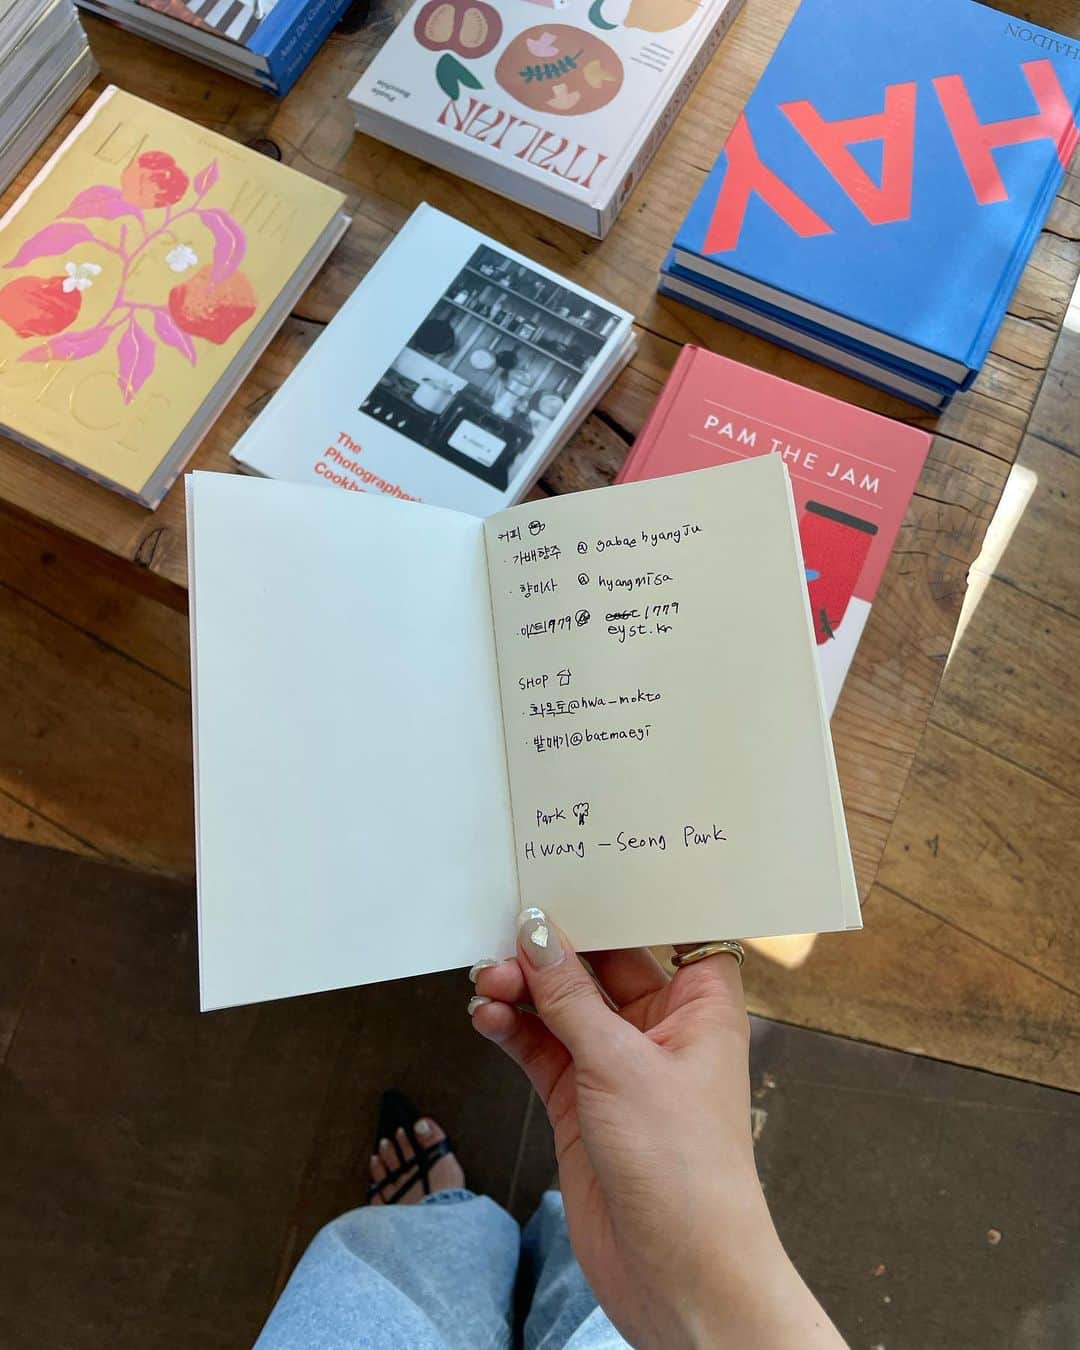 LA VITA
DICE
Paola
Bacchia
ITALIAN
HAY
PHAIDON
The
Photographer's
Cookbook
PAM THE JAM
커피
· 가배향주 @ gabaehyangju
· 향미사 @ hyangmisa
· 이스트1979 @ east 1779
eyst.kr
SHOP
· 화목토@hwa-mokto
· 밭매기@batmaegi
Park
Hwang-Seong Park